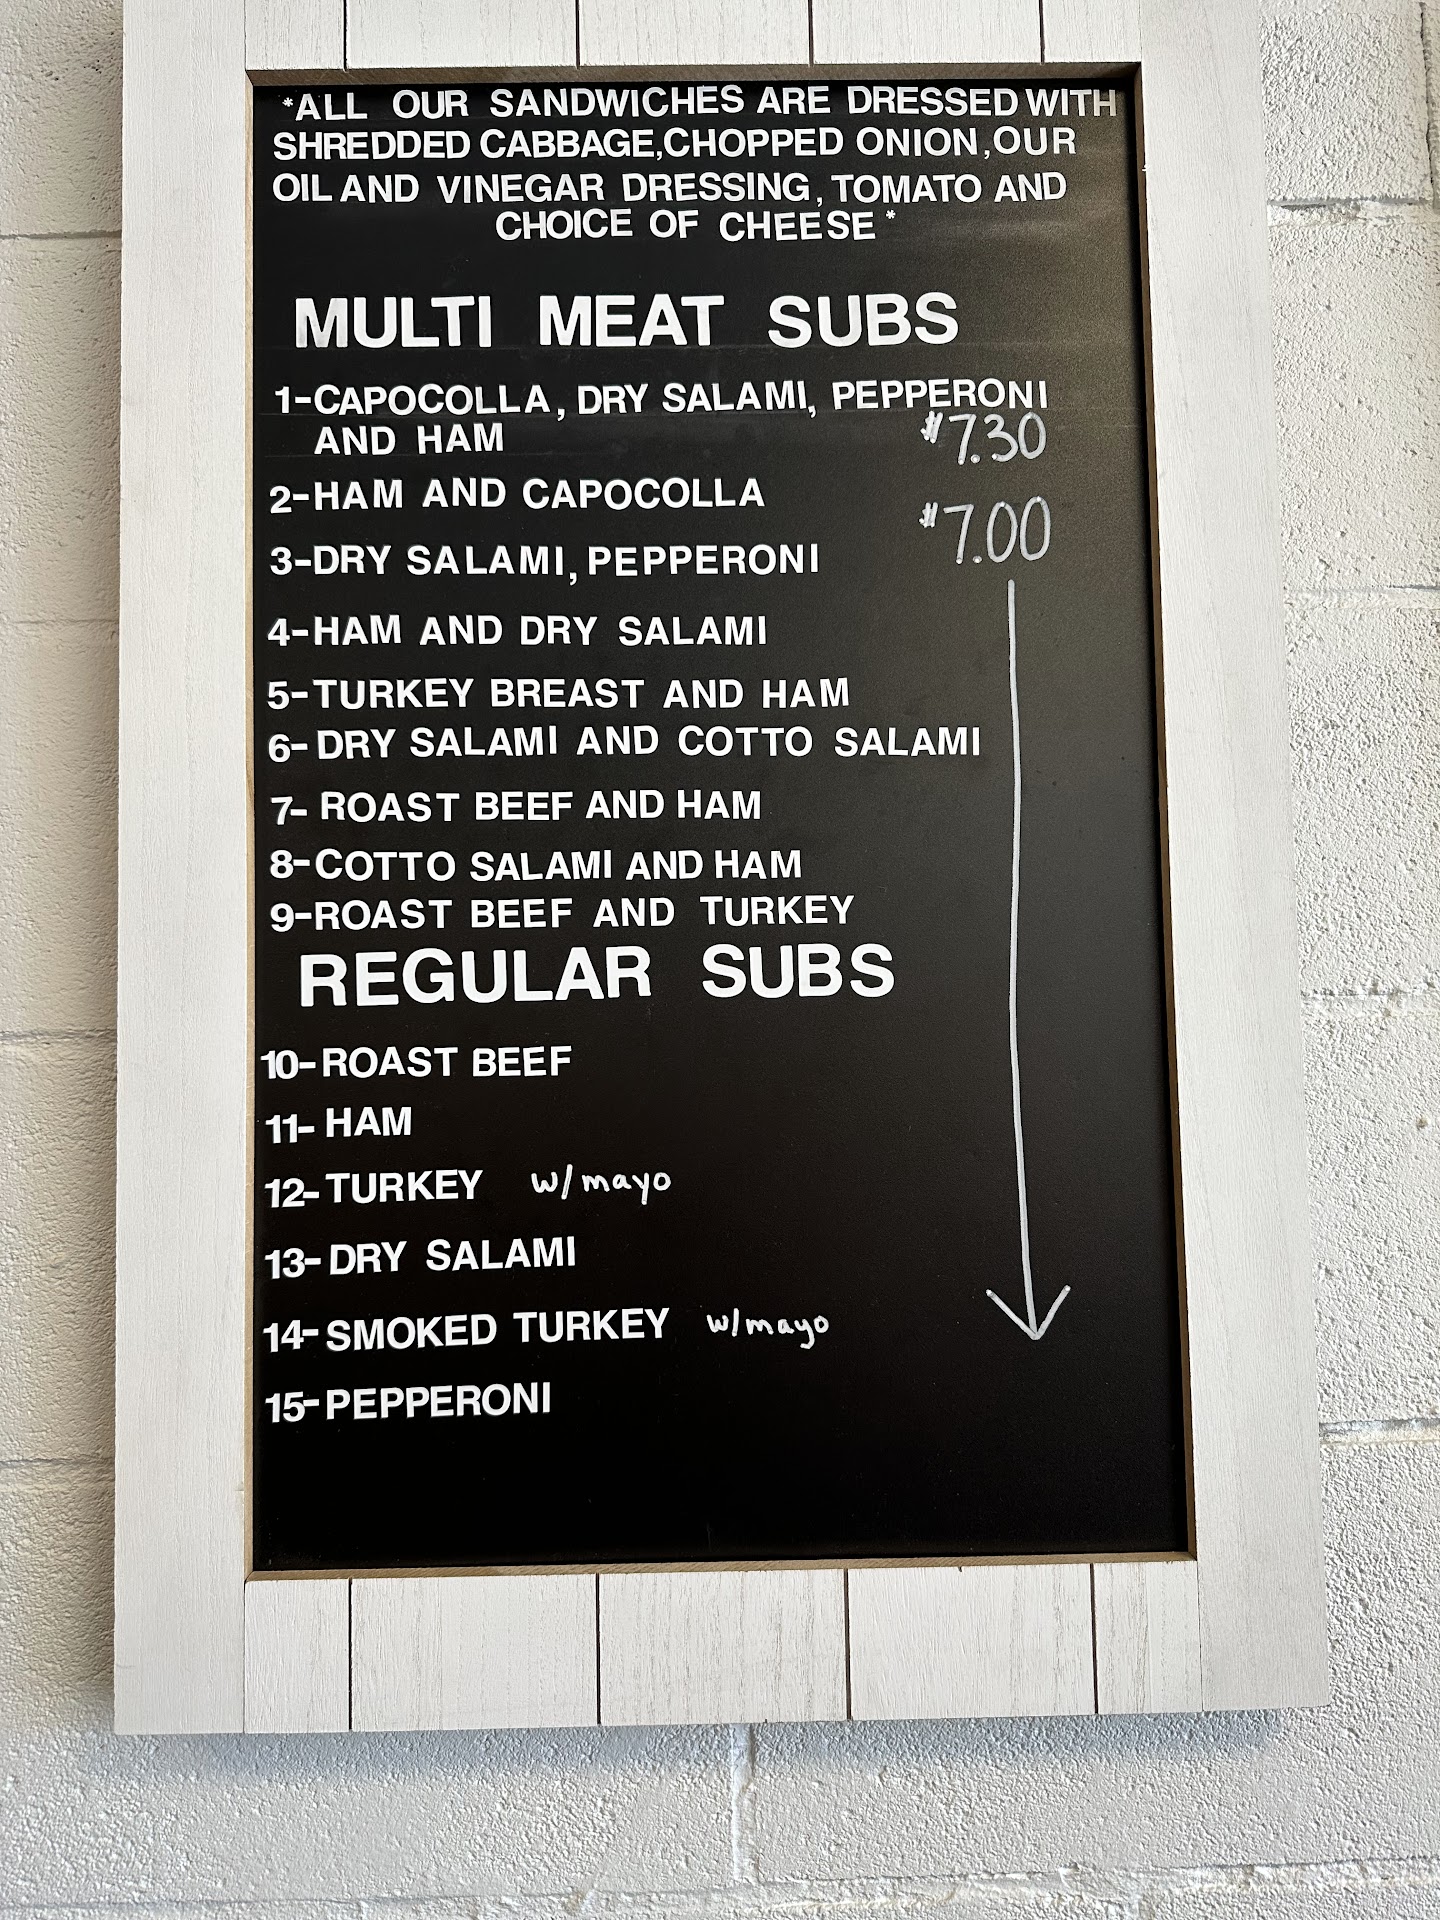 *ALL OUR SANDWICHES ARE DRESSED WITH
SHREDDED CABBAGE,CHOPPED ONION,OUR
OIL AND VINEGAR DRESSING, TOMATO AND
CHOICE OF CHEESE*
MULTI MEAT SUBS
1-CAPOCOLLA, DRY SALAMI, PEPPERONI
AND HAM $7.30
2-HAM AND CAPOCOLLA
$7.00
3-DRY SALAMI, PEPPERONI
4-HAM AND DRY SALAMI
5-TURKEY BREAST AND HAM
6-DRY SALAMI AND COTTO SALAMI
7-ROAST BEEF AND HAM
8-COTTO SALAMI AND HAM
9-ROAST BEEF AND TURKEY
REGULAR SUBS
10-ROAST BEEF
11-HAM
12-TURKEY w/mayo
13-DRY SALAMI
14-SMOKED TURKEY w/mayo
15-PEPPERONI